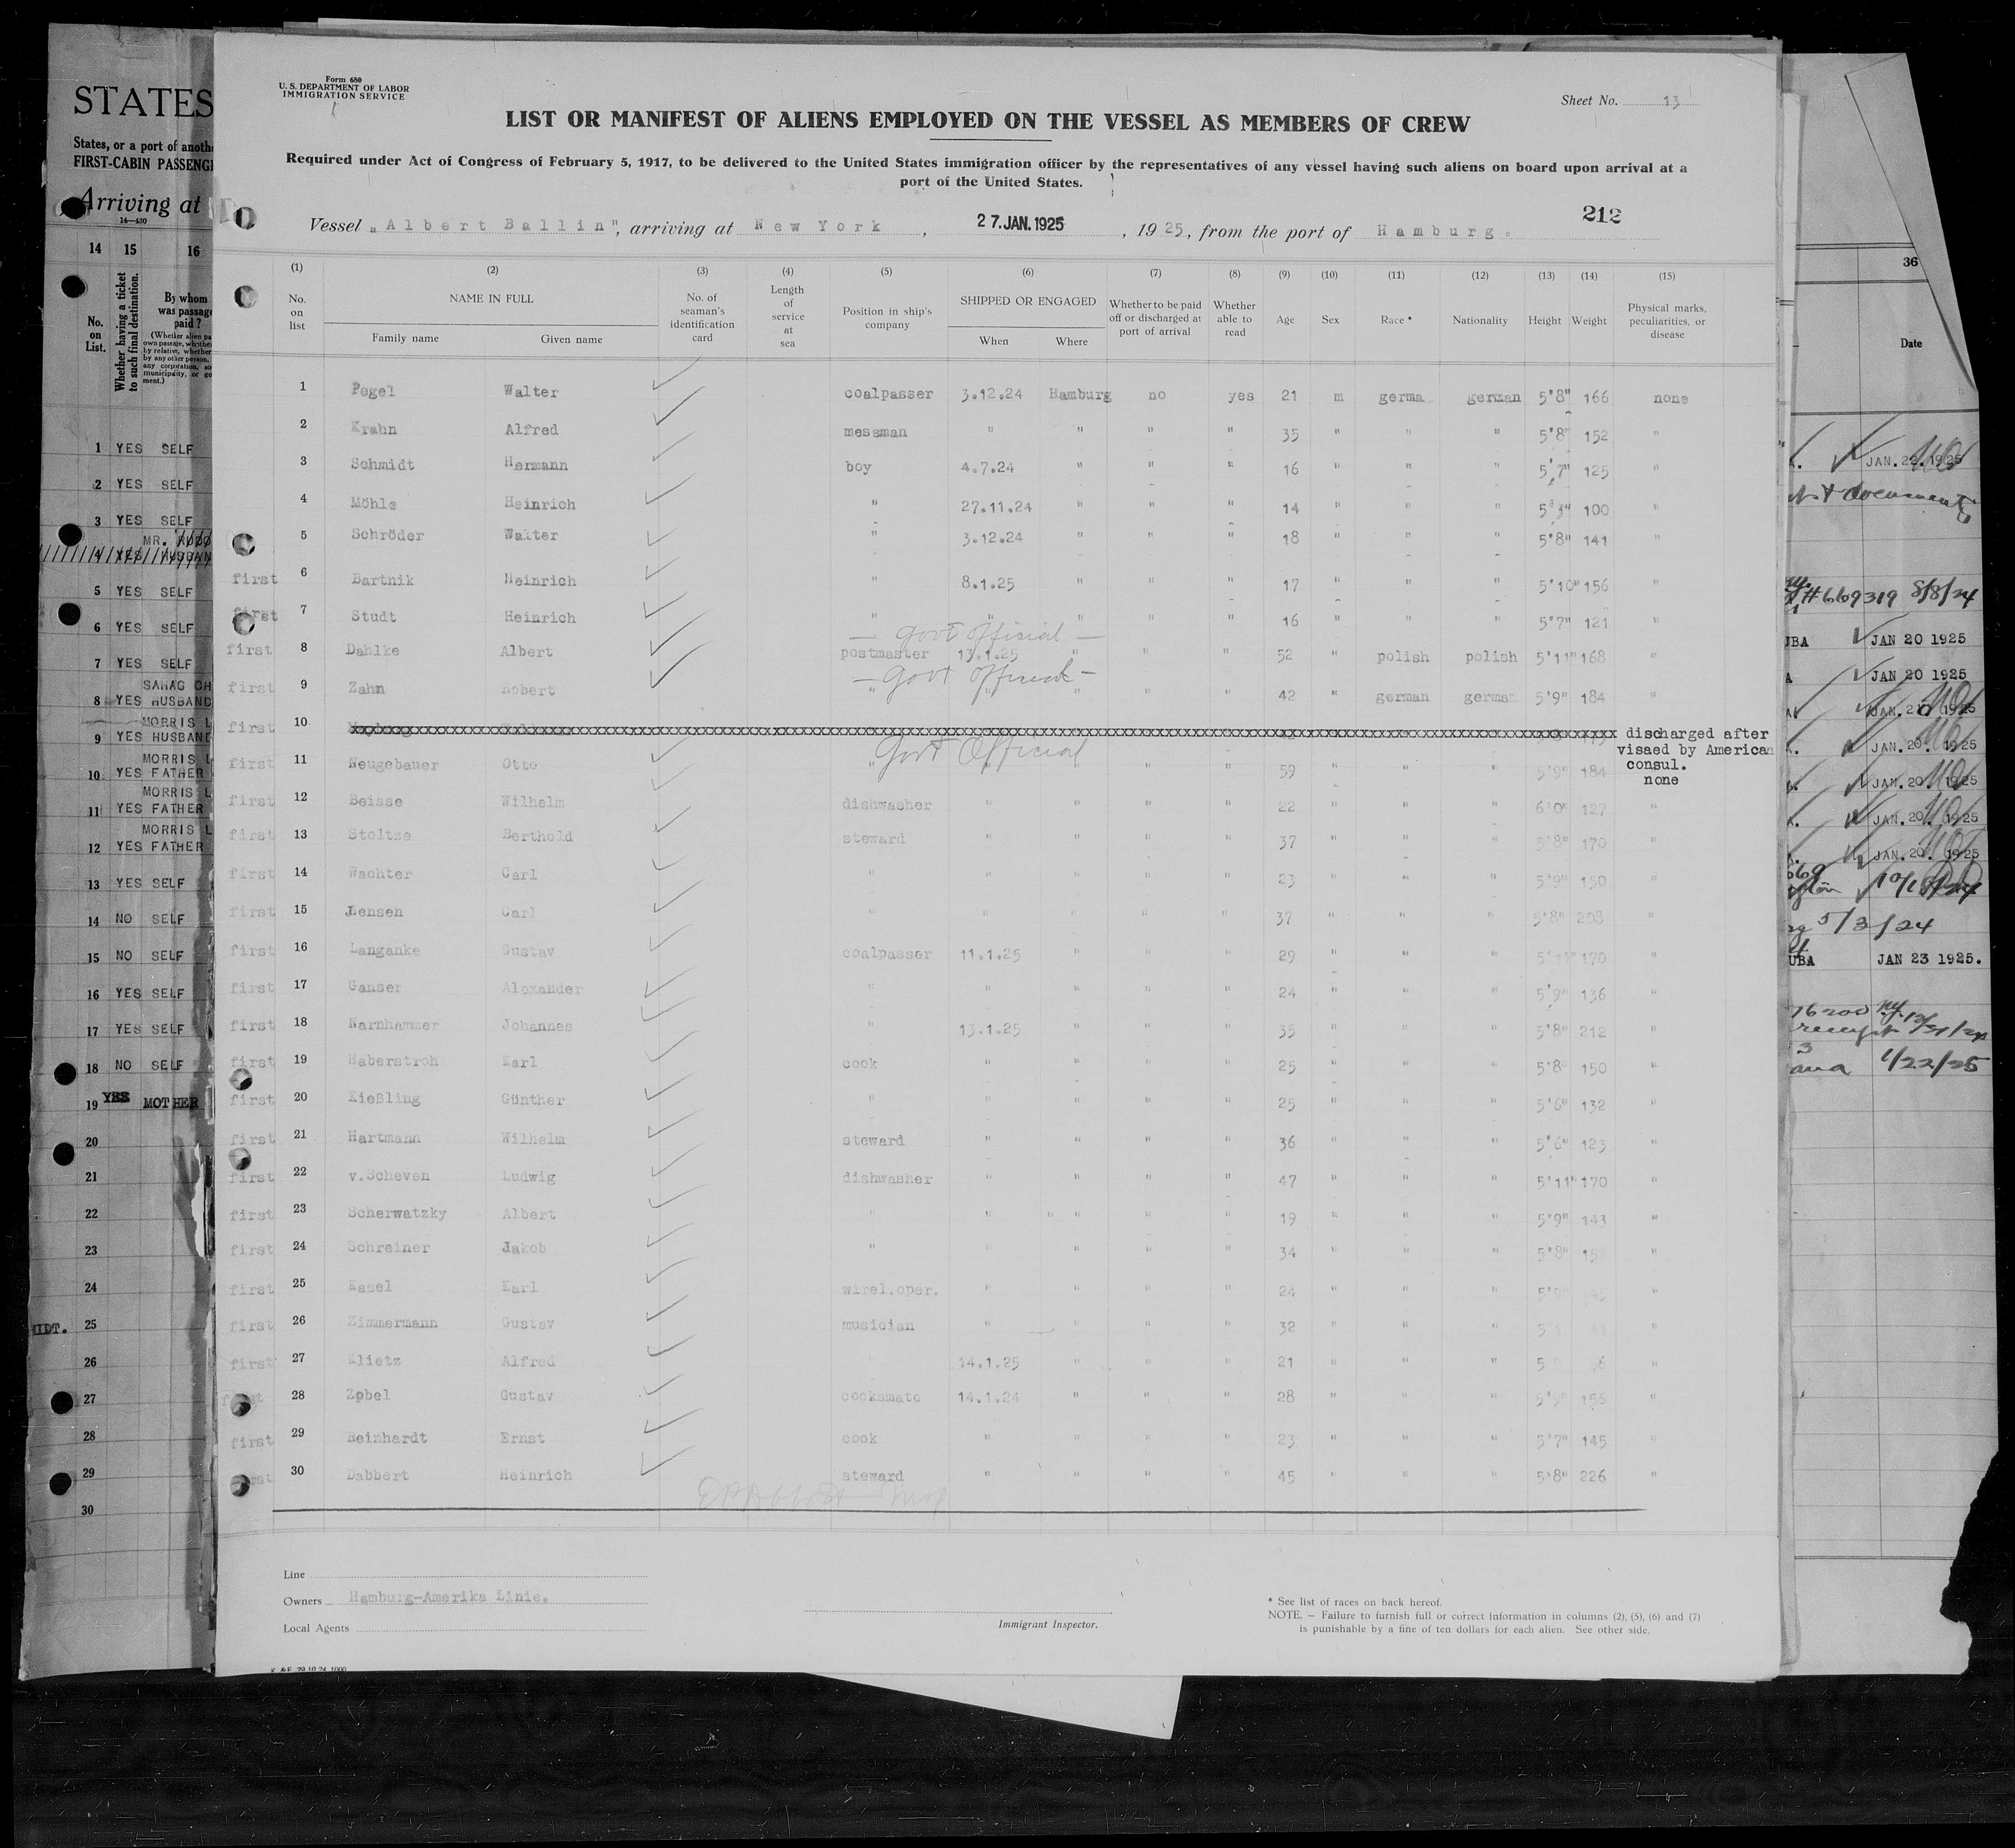 Form 680
U. S. DEPARTMENT OF LABOR
IMMIGRATION SERVICE
Sheet No. 13
LIST OR MANIFEST OF ALIENS EMPLOYED ON THE VESSEL AS MEMBERS OF CREW
Required under Act of Congress of February 5, 1917, to be delivered to the United States immigration officer by the representatives of any vessel having such aliens on board upon arrival at a
port of the United States.
212
Vessel „Albert Ballin", arriving at New York, 27. JAN. 1925, 1925, from the port of Hamburg.
(1) (2) (3) (4) (5) (6) (7) (8) (9) (10) (11) (12) (13) (14) (15)
No. on list NAME IN FULL Family name Given name No. of seaman's identification card Length of service at sea Position in ship's company SHIPPED OR ENGAGED When Where Whether to be paid off or discharged at port of arrival Whether able to read Age Sex Race * Nationality Height Weight Physical marks, peculiarities, or disease
1 Pegel Walter coalpasser 3.12.24 Hamburg no yes 21 m germa german 5'8" 166 none
2 Krahn Alfred messman " " " " 35 " " " 5'8" 152 "
3 Schmidt Hermann boy 4.7.24 " " " 16 " " " 5'7" 125 "
4 Möhle Heinrich " 27.11.24 " " " 14 " " " 5'3" 100 "
5 Schröder Walter " 3.12.24 " " " 18 " " " 5'8" 141 "
first 6 Bartnik Heinrich " 8.1.25 " " " 17 " " " 5'10" 156 "
first 7 Studt Heinrich " " " " " 16 " " " 5'7" 121 "
— Govt official —
first 8 Dahlke Albert postmaster 13.1.25 " " " 52 " polish polish 5'11" 168 "
— Govt official —
first 9 Zahn Robert " " " " " 42 " german german 5'9" 184 "
first 10 discharged after
visaed by American
consul.
Govt Official
first 11 Neugebauer Otto " " " " " 59 " " " 5'9" 184 none
first 12 Beisse Wilhelm dishwasher " " " " 22 " " " 6'0" 127 "
first 13 Stoltze Berthold steward " " " " 37 " " " 5'8" 170 "
first 14 Wachter Carl " " " " " 23 " " " 5'9" 150 "
first 15 Jensen Carl " " " " " 37 " " " 5'8" 208 "
first 16 Langanke Gustav coalpasser 11.1.25 " " " 29 " " " 5'11" 170 "
first 17 Ganser Alexander " " " " " 24 " " " 5'9" 136 "
first 18 Narnhammer Johannes " 13.1.25 " " " 35 " " " 5'8" 212 "
first 19 Haberstroh Karl cook " " " " 25 " " " 5'8" 150 "
first 20 Kießling Günther " " " " " 25 " " " 5'6" 132 "
first 21 Hartmann Wilhelm steward " " " " 36 " " " 5'6" 123 "
first 22 v.Scheven Ludwig dishwasher " " " " 47 " " " 5'11" 170 "
first 23 Scherwatzky Albert " " " " " 19 " " " 5'9" 143 "
first 24 Schreiner Jakob " " " " " 34 " " " 5'8" "
first 25 Kasel Karl wirel.oper. " " " " 24 " " " "
first 26 Zimmermann Gustav musician " " " " 32 " " " "
first 27 Klietz Alfred " 14.1.25 " " " 21 " " " "
first 28 Zobel Gustav cooksmate 14.1.24 " " " 28 " " " 5'9" 156 "
first 29 Reinhardt Ernst cook " " " " 23 " " " 5'7" 145 "
first 30 Dabbert Heinrich steward " " " " 45 " " " 5'8" 226 "
Line
Owners Hamburg-Amerika Linie.
Local Agents
Immigrant Inspector.
* See list of races on back hereof.
NOTE. — Failure to furnish full or correct information in columns (2), (5), (6) and (7)
is punishable by a fine of ten dollars for each alien. See other side.
K. & F. 29.10.24. 1000
STATES
States, or a port of anoth
FIRST-CABIN PASSENG
Arriving at
14—430
14 15 16
No. on List. Whether having a ticket to such final destination. By whom was passage paid?
1 YES SELF
2 YES SELF
3 YES SELF
MR. RUDO
4 YES HUSBAN
5 YES SELF
6 YES SELF
7 YES SELF
SAHAG CH
8 YES HUSBAND
MORRIS L
9 YES HUSBAND
MORRIS L
10 YES FATHER
MORRIS L
11 YES FATHER
MORRIS L
12 YES FATHER
13 YES SELF
14 NO SELF
15 NO SELF
16 YES SELF
17 YES SELF
18 NO SELF
19 YES MOTHER
20
21
22
23
24
MIDT. 25
26
27
28
29
30
36
Date
JAN. 22. 1925
#669319 8/8/24
UBA JAN 20 1925
JAN 20 1925
JAN. 20. 1925
JAN. 20. 1925
JAN. 20. 1925
JAN. 20. 1925
5/3/24
UBA JAN 23 1925.
1/22/25